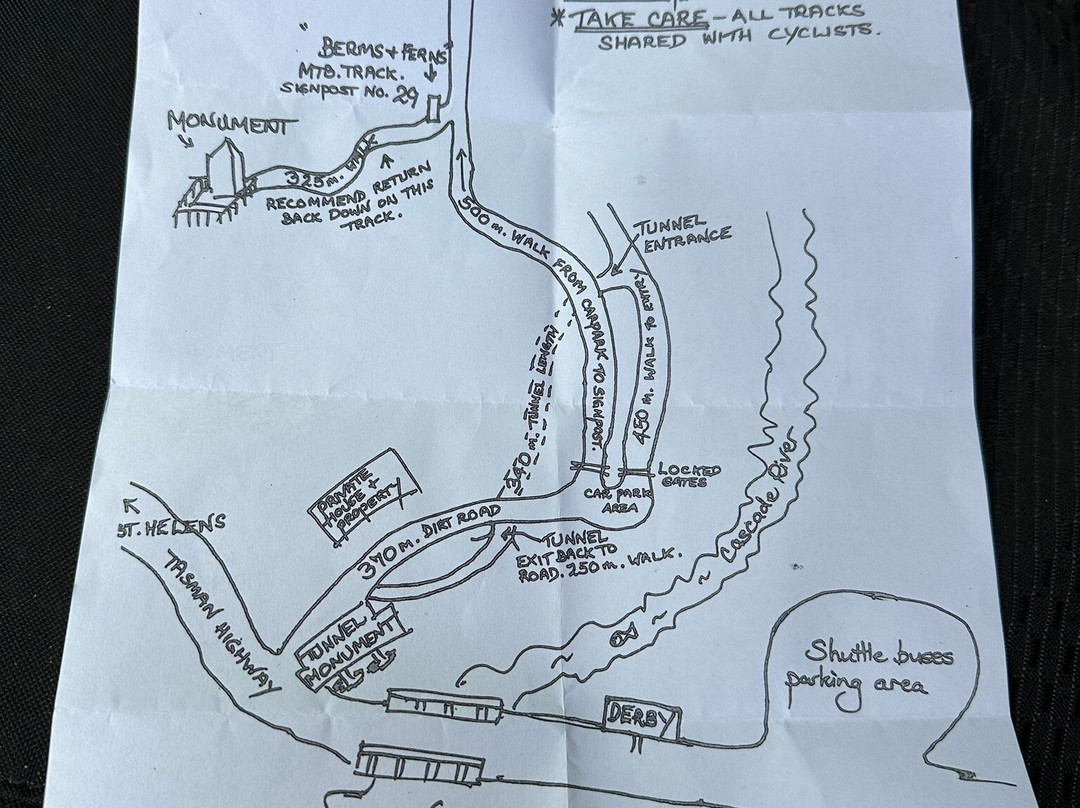 * TAKE CARE - ALL TRACKS
SHARED WITH CYCLISTS.
BERMS + FERNS
MTB. TRACK.
SIGNPOST NO. 29
MONUMENT
325 m. WALK
RECOMMEND RETURN
BACK DOWN ON THIS
TRACK.
500 m. WALK FROM CARPARK TO SIGNPOST.
TUNNEL
ENTRANCE
450 m. WALK TO ENTRY
340 m. TUNNEL LENGTH
LOCKED
GATES
CAR PARK
AREA
Cascade River
PRIVATE
HOUSE +
PROPERTY
370 m. DIRT ROAD
TUNNEL
EXIT BACK TO
ROAD. 250 m. WALK.
ST. HELENS
TASMAN HIGHWAY
TUNNEL
MONUMENT
Shuttle buses
parking area
DERBY